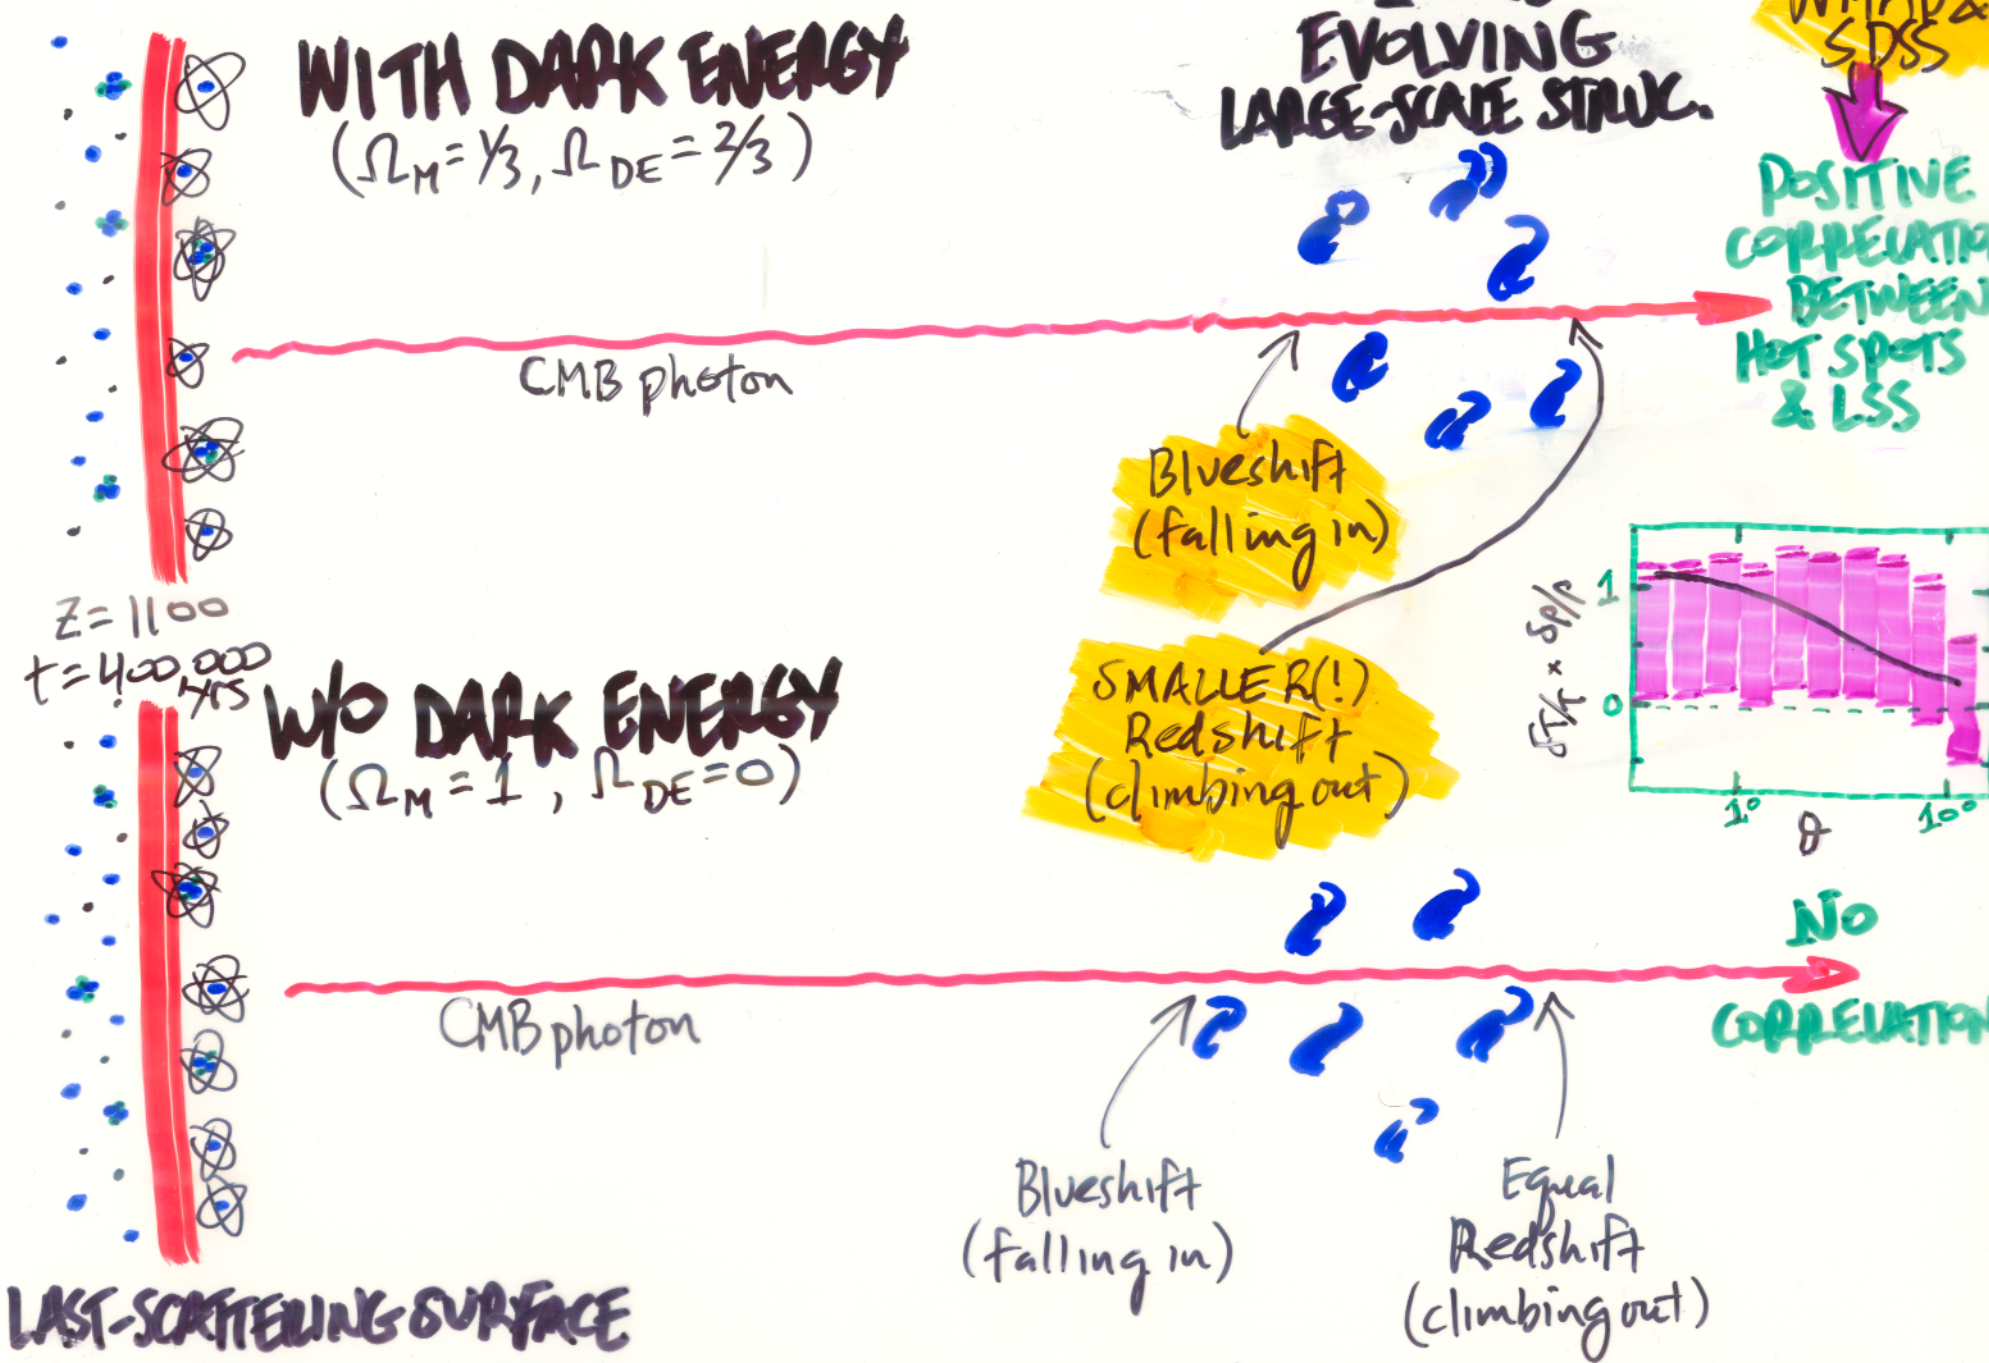 WITH DARK ENERGY
(Ω_M = 1/3, Ω_DE = 2/3)
EVOLVING
LARGE-SCALE STRUC.
WMAP &
SDSS
POSITIVE
CORRELATIO
BETWEEN
HOT SPOTS
& LSS
CMB photon
Blueshift
(falling in)
SMALLER(!)
Redshift
(climbing out)
Z=1100
t=400,000
yrs
1
0
δT/T × δρ/ρ
1°
10°
θ
W/O DARK ENERGY
(Ω_M = 1, Ω_DE = 0)
NO
CORRELATION
CMB photon
Blueshift
(falling in)
Equal
Redshift
(climbing out)
LAST-SCATTERING SURFACE